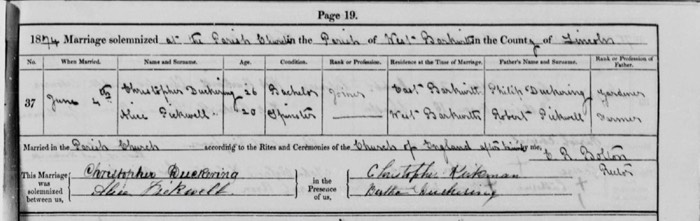 Page 19.
1874 Marriage solemnized at the Parish Church in the Parish of West Barkwith in the County of Lincoln
No. When Married. Name and Surname. Age. Condition. Rank or Profession. Residence at the Time of Marriage. Father's Name and Surname. Rank or Profession of Father.
37 June 4th Christopher Duckering 26 Bachelor Joiner East Barkwith Philip Duckering Gardener
Alice Pickwell 20 Spinster West Barkwith Robert Pickwell Farmer
Married in the Parish Church according to the Rites and Ceremonies of the Church of England after by me,
C. R. Bolton
Rector
This Marriage was solemnized between us, Christopher Duckering in the Presence of us, Christopher Kirkman
Alice Pickwell Duckering